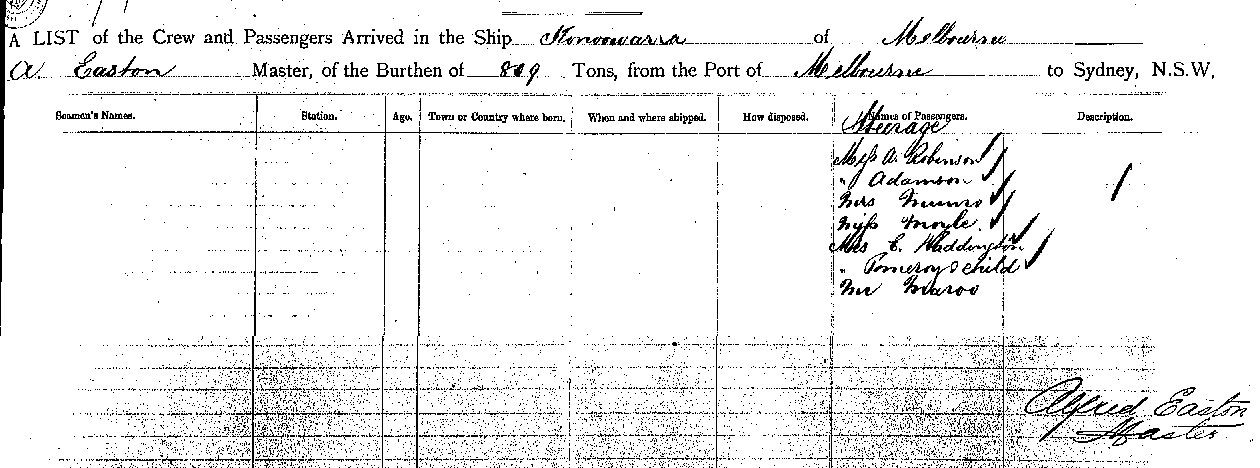 A LIST of the Crew and Passengers Arrived in the Ship Konoowarra of Melbourne
A. Easton Master, of the Burthen of 809 Tons, from the Port of Melbourne to Sydney, N.S.W,
Seamen's Names. Station. Age. Town or Country where born. When and where shipped. How disposed. Names of Passengers. Description.
Steerage
Miss A. Robinson
" Adamson
Mrs Munro
Miss Moyle
Mrs C. Waddington
" Pomeroy & child
Mr
Alfred Easton
Master